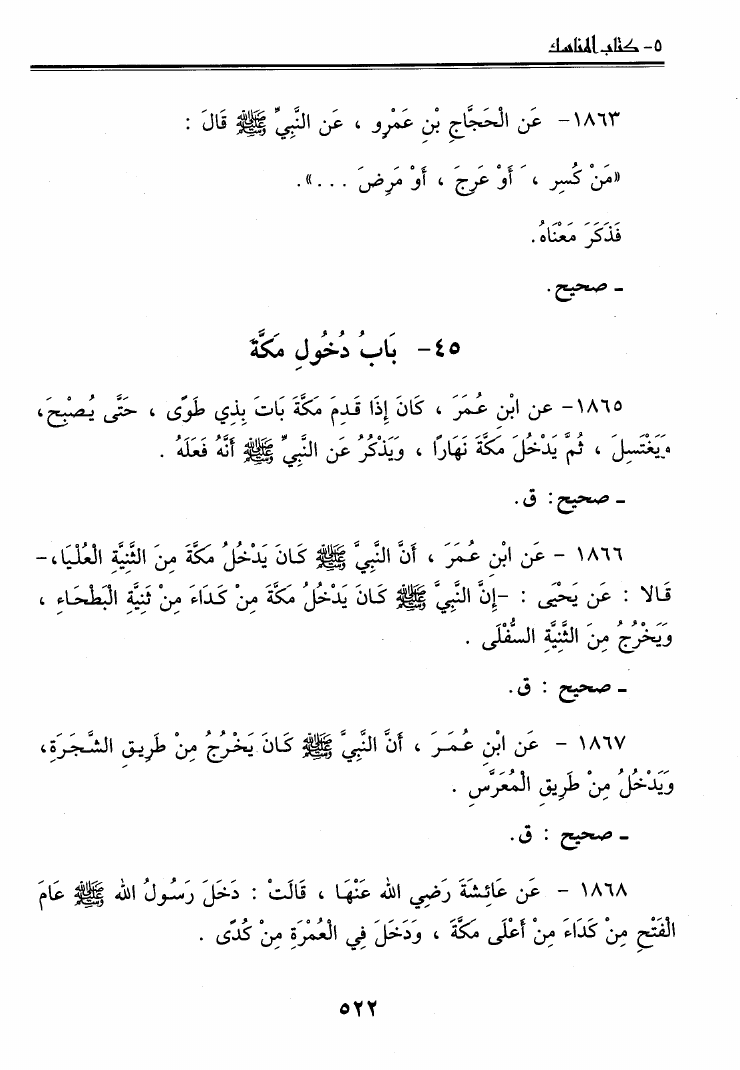 ٥- كتاب المناسك
١٨٦٣- عَن الْحَجَّاجِ بْنِ عَمْرٍو ، عَن النَّبِيِّ ﷺ قَالَ :
«مَنْ كُسِر ، َ أَوْ عَرِجَ ، أَوْ مَرِضَ ...».
فَذَكَرَ مَعْنَاهُ.
ـ صحيح.
٤٥- بَابُ دُخُولِ مَكَّةَ
١٨٦٥- عن ابْنِ عُمَرَ ، كَانَ إِذَا قَدِمَ مَكَّةَ بَاتَ بِذِي طَوًى ، حَتَّى يُصْبِحَ،
وَيَغْتَسِلَ ، ثُمَّ يَدْخُلَ مَكَّةَ نَهَارًا ، وَيَذْكُرُ عَن النَّبِيِّ ﷺ أَنَّهُ فَعَلَهُ .
ـ صحيح: ق.
١٨٦٦ - عَن ابْنِ عُمَرَ ، أَنَّ النَّبِيَّ ﷺ كَانَ يَدْخُلُ مَكَّةَ مِنَ الثَّنِيَّةِ الْعُلْيَا،-
قَالا : عَن يَحْيَى : -إِنَّ النَّبِيَّ ﷺ كَانَ يَدْخُلُ مَكَّةَ مِنْ كَدَاءَ مِنْ ثَنِيَّةِ الْبَطْحَاءِ ،
وَيَخْرُجُ مِنَ الثَّنِيَّةِ السُّفْلَى .
ـ صحيح : ق.
١٨٦٧ - عَن ابْنِ عُمَرَ ، أَنَّ النَّبِيَّ ﷺ كَانَ يَخْرُجُ مِنْ طَرِيقِ الشَّجَرَةِ،
وَيَدْخُلُ مِنْ طَرِيقِ الْمُعَرَّسِ .
ـ صحيح : ق.
١٨٦٨ - عَن عَائِشَةَ رَضِي الله عَنْهَا ، قَالَتْ : دَخَلَ رَسُولُ الله ﷺ عَامَ
الْفَتْحِ مِنْ كَدَاءَ مِنْ أَعْلَى مَكَّةَ ، وَدَخَلَ فِي الْعُمْرَةِ مِنْ كُدًى .
٥٢٢